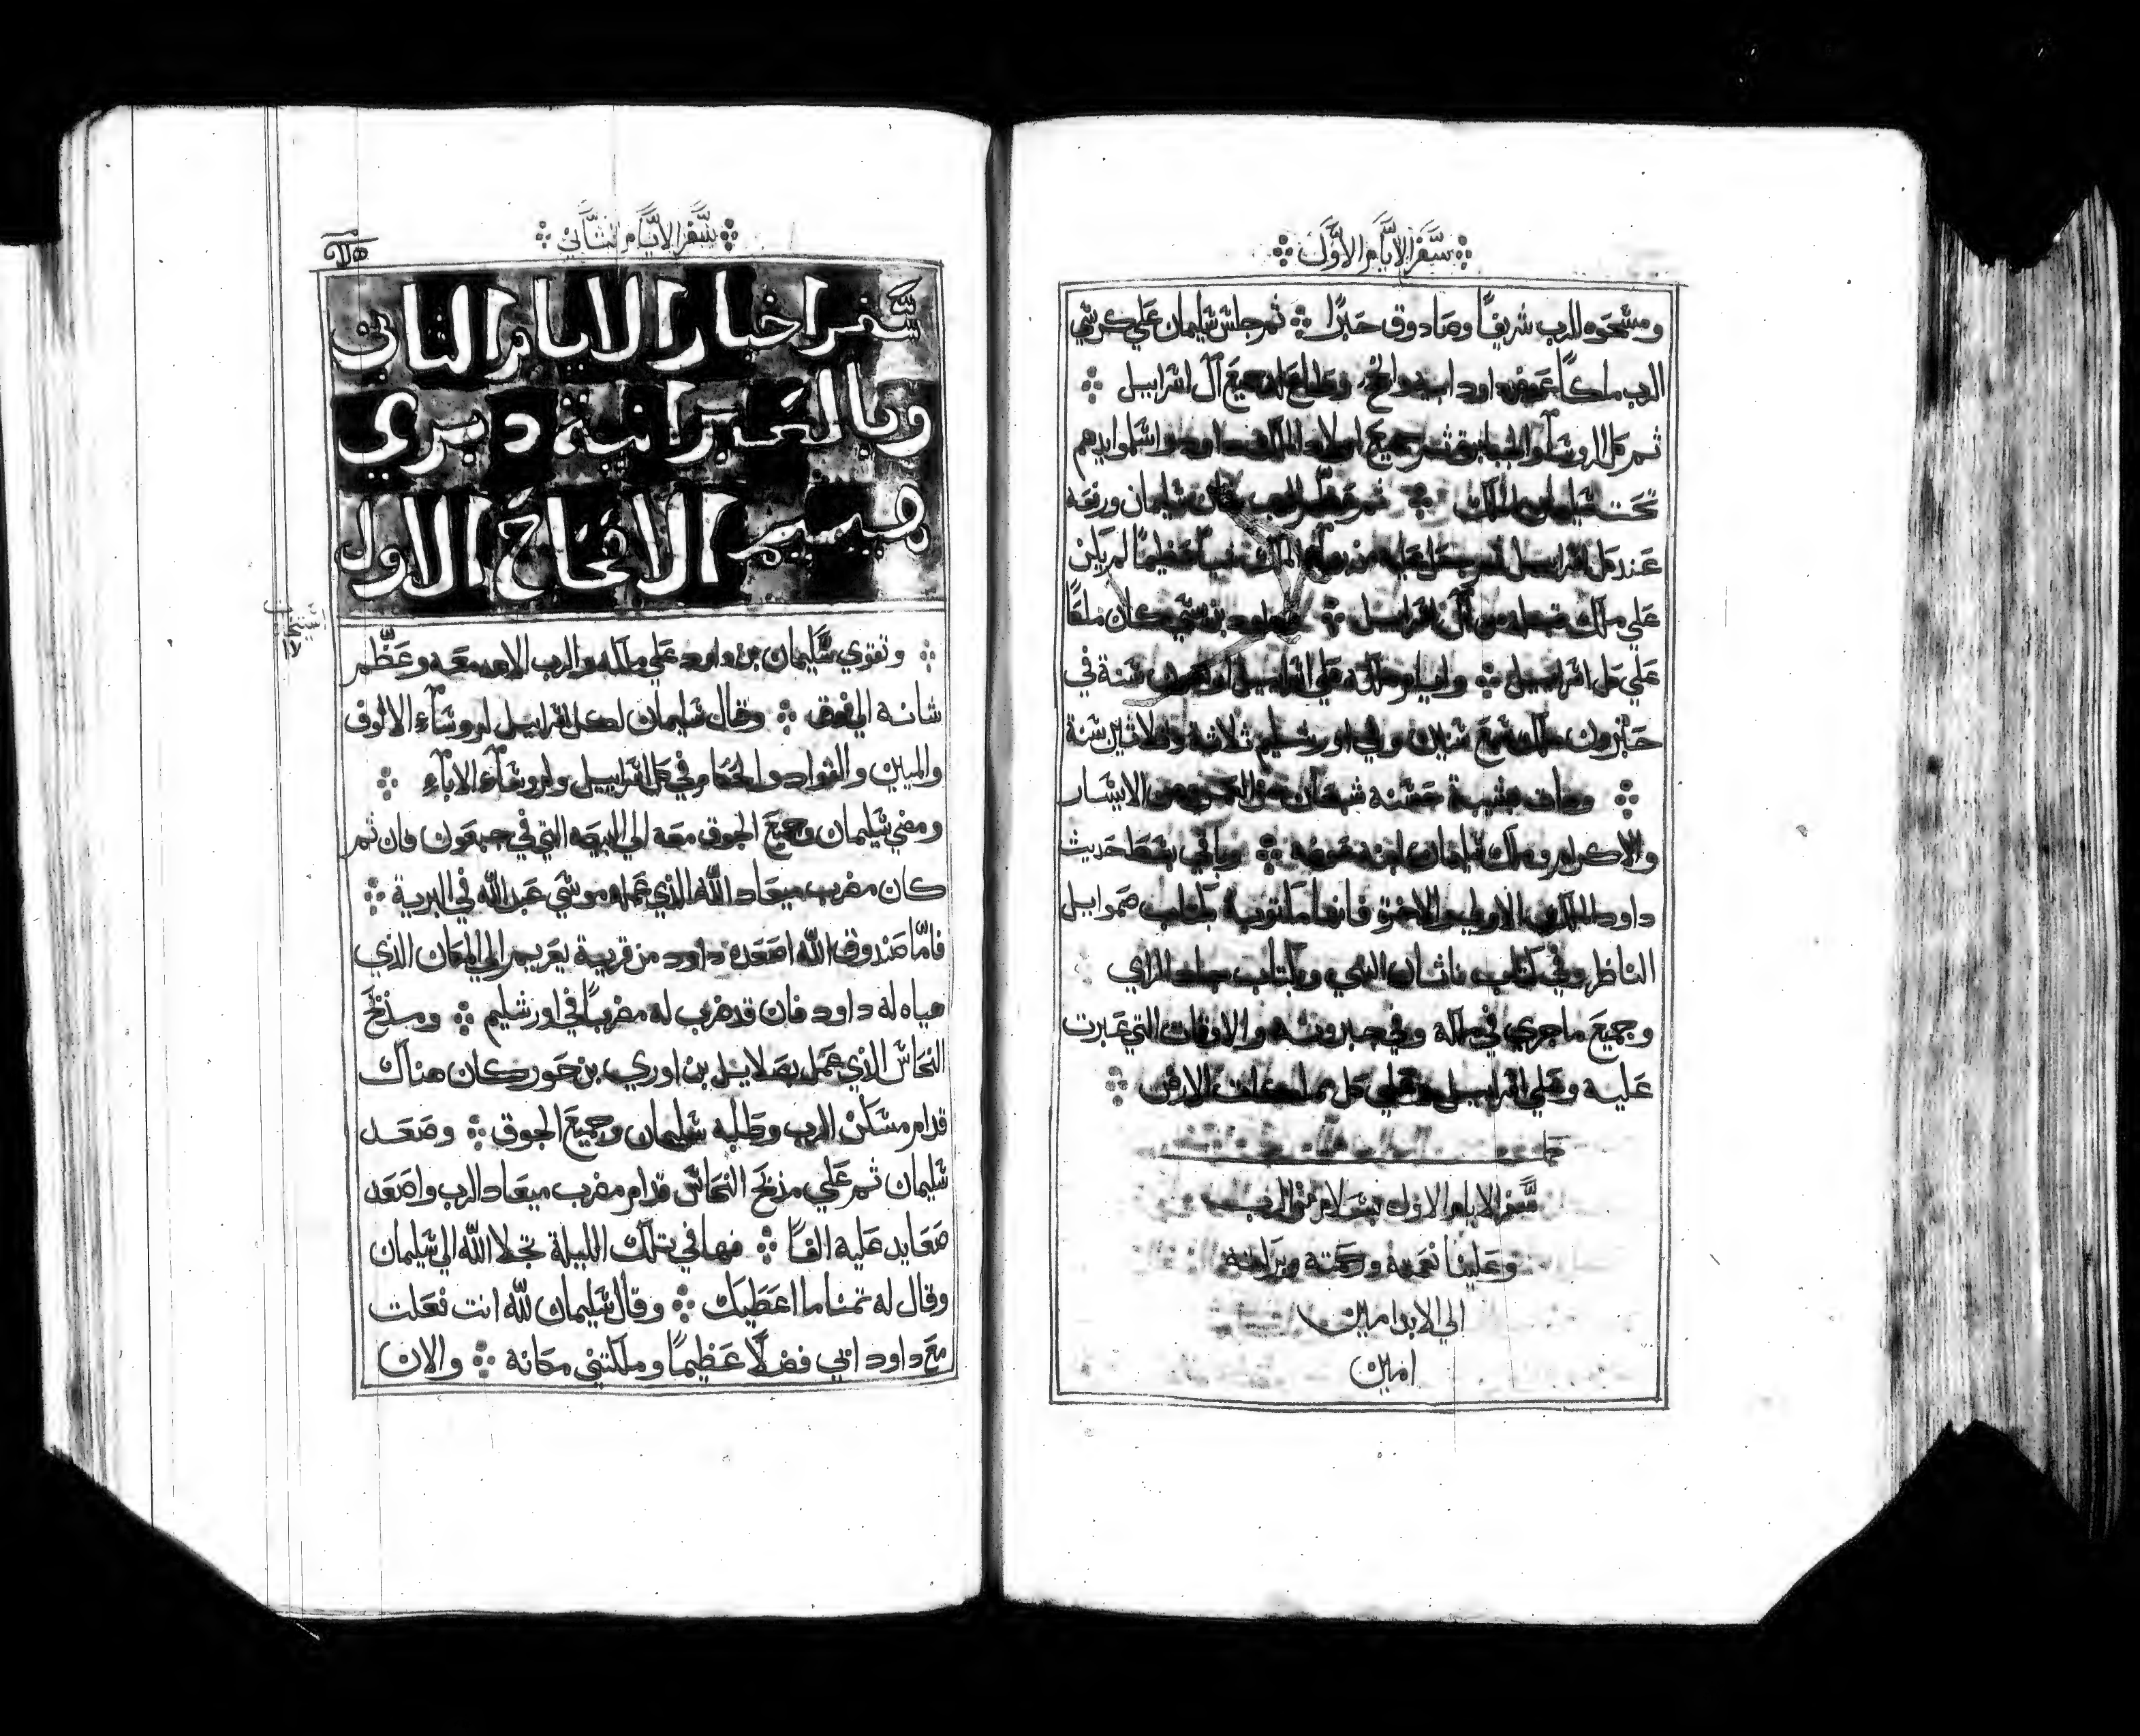 سفر الايام الاول
ومسحوه للرب شريفًا وصادوق حبرًا ثم جلس سليمان علي كرسي
الرب ملكًا عوض داود ابيه وانجح وطاع له جميع آل اسراييل
ثم كل الروسآ والجبابرة ثم جميع اولاد الملك داود واسلموا ايدهم
تحت سليمان الملك ثم عظم الرب شان سليمان ورفعه
عند كل اسراييل عظيمًا لم يكن
علي ملك قبله من آل اسراييل داود بن يسي كان ملكًا
علي كل اسراييل وايام ملكه علي اسراييل اربعون سنة في
حبرون ملك سبع سنين وفي اورشليم ثلاثة وثلاثين سنة
ومات بشيبة حسنة شبعان من العمر ومن الايسار
والاكرام وملك سليمان ابنه عوضه وباقي بسط حديث
داود الملك الاولي والاخرة فانها مكتوبة بكتاب صموايل
الناظر وفي كتاب ناثان النبي وبكتاب جاد الراي
وجميع ماجري في ملكه وفي جبروته والاوقات التي عبرت
عليه وعلي اسراييل وعلي كل مملكات الارض
سفر الايام الاول بسلام من الرب
وعلينا نعمته ورحمته وبركته
الي الابد امين
امين
سفر الايام الثاني
سفر اخبار الايام الثاني
وبالعبرانية دبري
هييميم الافتتاح الاول
وتقوي سليمان بن داود علي ملكه والرب الاهه معه وعظم
شانه الي فوق وقال سليمان لكل اسراييل لروسآء الالوف
والميين والقواد والحكام في كل اسراييل ولروسآء الابآء
ومضي سليمان وجميع الجوق معه الي البيعه التي في جبعون فان ثم
كان مضرب ميعاد الله الذي عمله موسي عبد الله في البرية
فامّا صندوق الله اصعده داود من قرية يعريم الي المكان الذي
هياه له داود فان قد ضرب له مضربًا في اورشليم ومذبح
النحاس الذي عمل بصلاييل بن اوري بن حور كان هناك
قدام مسكن الرب وطلبه سليمان وجميع الجوق وصعد
سليمان ثم علي مذبح النحاس قدام مضرب ميعاد الرب واصعد
صعايد عليه الفًا فها في تلك الليلة تجلا الله الي سليمان
وقال له تمنا ما اعطيك وقال سليمان لله انت فعلت
مع داود ابي فضلًا عظيمًا وملكتني مكانه والان